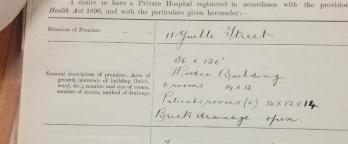 I desire to have a Private Hospital registered in accordance with the provision
Health Act 1890, and with the particulars given hereunder:—
Situation of Premises
11 Street
36 x 120'
Wooden Building
General description of premises: Area of
ground, materials of building (brick,
wood, &c.), number and size of rooms,
number of stories, method of drainage.
6 rooms 14 x 12
Patients rooms (2) 14 x 12 x 14
Brick drainage open.